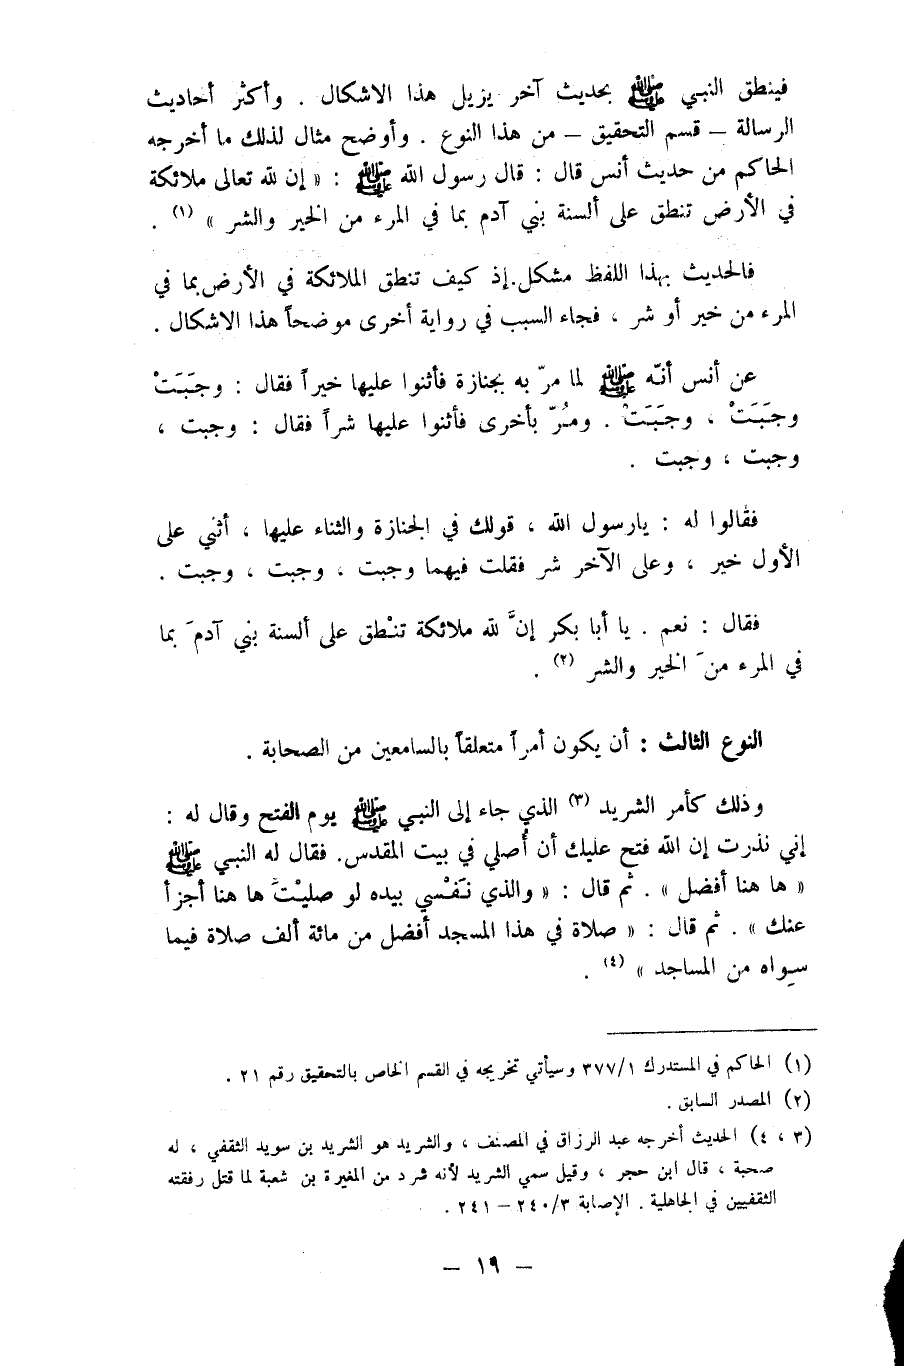 فينطق النبي ﷺ بحديث آخر يزيل هذا الاشكال . وأكثر أحاديث
الرسالة – قسم التحقيق – من هذا النوع . وأوضح مثال لذلك ما أخرجه
الحاكم من حديث أنس قال : قال رسول الله ﷺ : « إن لله تعالى ملائكة
في الأرض تنطق على ألسنة بني آدم بما في المرء من الخير والشر » (١) .
فالحديث بهذا اللفظ مشكل.إذ كيف تنطق الملائكة في الأرض بما في
المرء من خير أو شر ، فجاء السبب في رواية أخرى موضحاً هذا الاشكال .
عن أنس أنّه ﷺ لما مرّ به بجنازة فأثنوا عليها خيراً فقال : وجَبَتْ
وجَبَتْ ، وجَبَتْ . ومُرّ بأخرى فأثنوا عليها شراً فقال : وجبت ،
وجبت ، وجبت .
فقالوا له : يارسول الله ، قولك في الجنازة والثناء عليها ، أثني على
الأول خير ، وعلى الآخر شر فقلت فيهما وجبت ، وجبت ، وجبت .
فقال : نعم . يا أبا بكر إنَّ لله ملائكة تنْطق على ألسنة بني آدمَ بما
في المرء منَ الخير والشر (٢) .
النوع الثالث : أن يكون أمراً متعلقاً بالسامعين من الصحابة .
وذلك كأمر الشريد (٣) الذي جاء إلى النبي ﷺ يوم الفتح وقال له :
إني نذرت إن الله فتح عليك أن أُصلي في بيت المقدس. فقال له النبي ﷺ
« ها هنا أفضل » . ثم قال : « والذي نَفْسي بيده لو صليْتَ ها هنا أجزأ
عنك » . ثم قال : « صلاة في هذا المسجد أفضل من مائة ألف صلاة فيما
سِواه من المساجد » (٤) .
(١) الحاكم في المستدرك ٣٧٧/١ وسيأتي تخريجه في القسم الخاص بالتحقيق رقم ٢١ .
(٢) المصدر السابق .
(٣ ، ٤) الحديث أخرجه عبد الرزاق في المصنف ، والشريد هو الشريد بن سويد الثقفي ، له
صحبة ، قال ابن حجر ، وقيل سمي الشريد لأنه شرد من المغيرة بن شعبة لما قتل رفقته
الثقفيين في الجاهلية . الإصابة ٢٤٠/٣ – ٢٤١ .
– ١٩ –